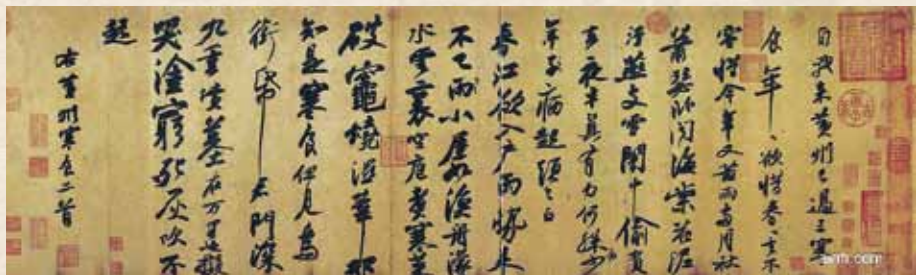 自我來黃州已過三寒
食年〻欲惜春〻去不
容惜今年又苦雨兩月秋
蕭瑟臥聞海棠花泥
汙燕支雪闇中偷負
去夜半真有力何殊少
年子病起頭已白
春江欲入戶雨勢來
不已雨小屋如漁舟濛
水雲裏空庖煮寒菜
破竈燒濕葦那
知是寒食但見烏
銜帋君門深
九重墳墓在万里也擬
哭塗窮死灰吹不
起
右黃州寒食二首